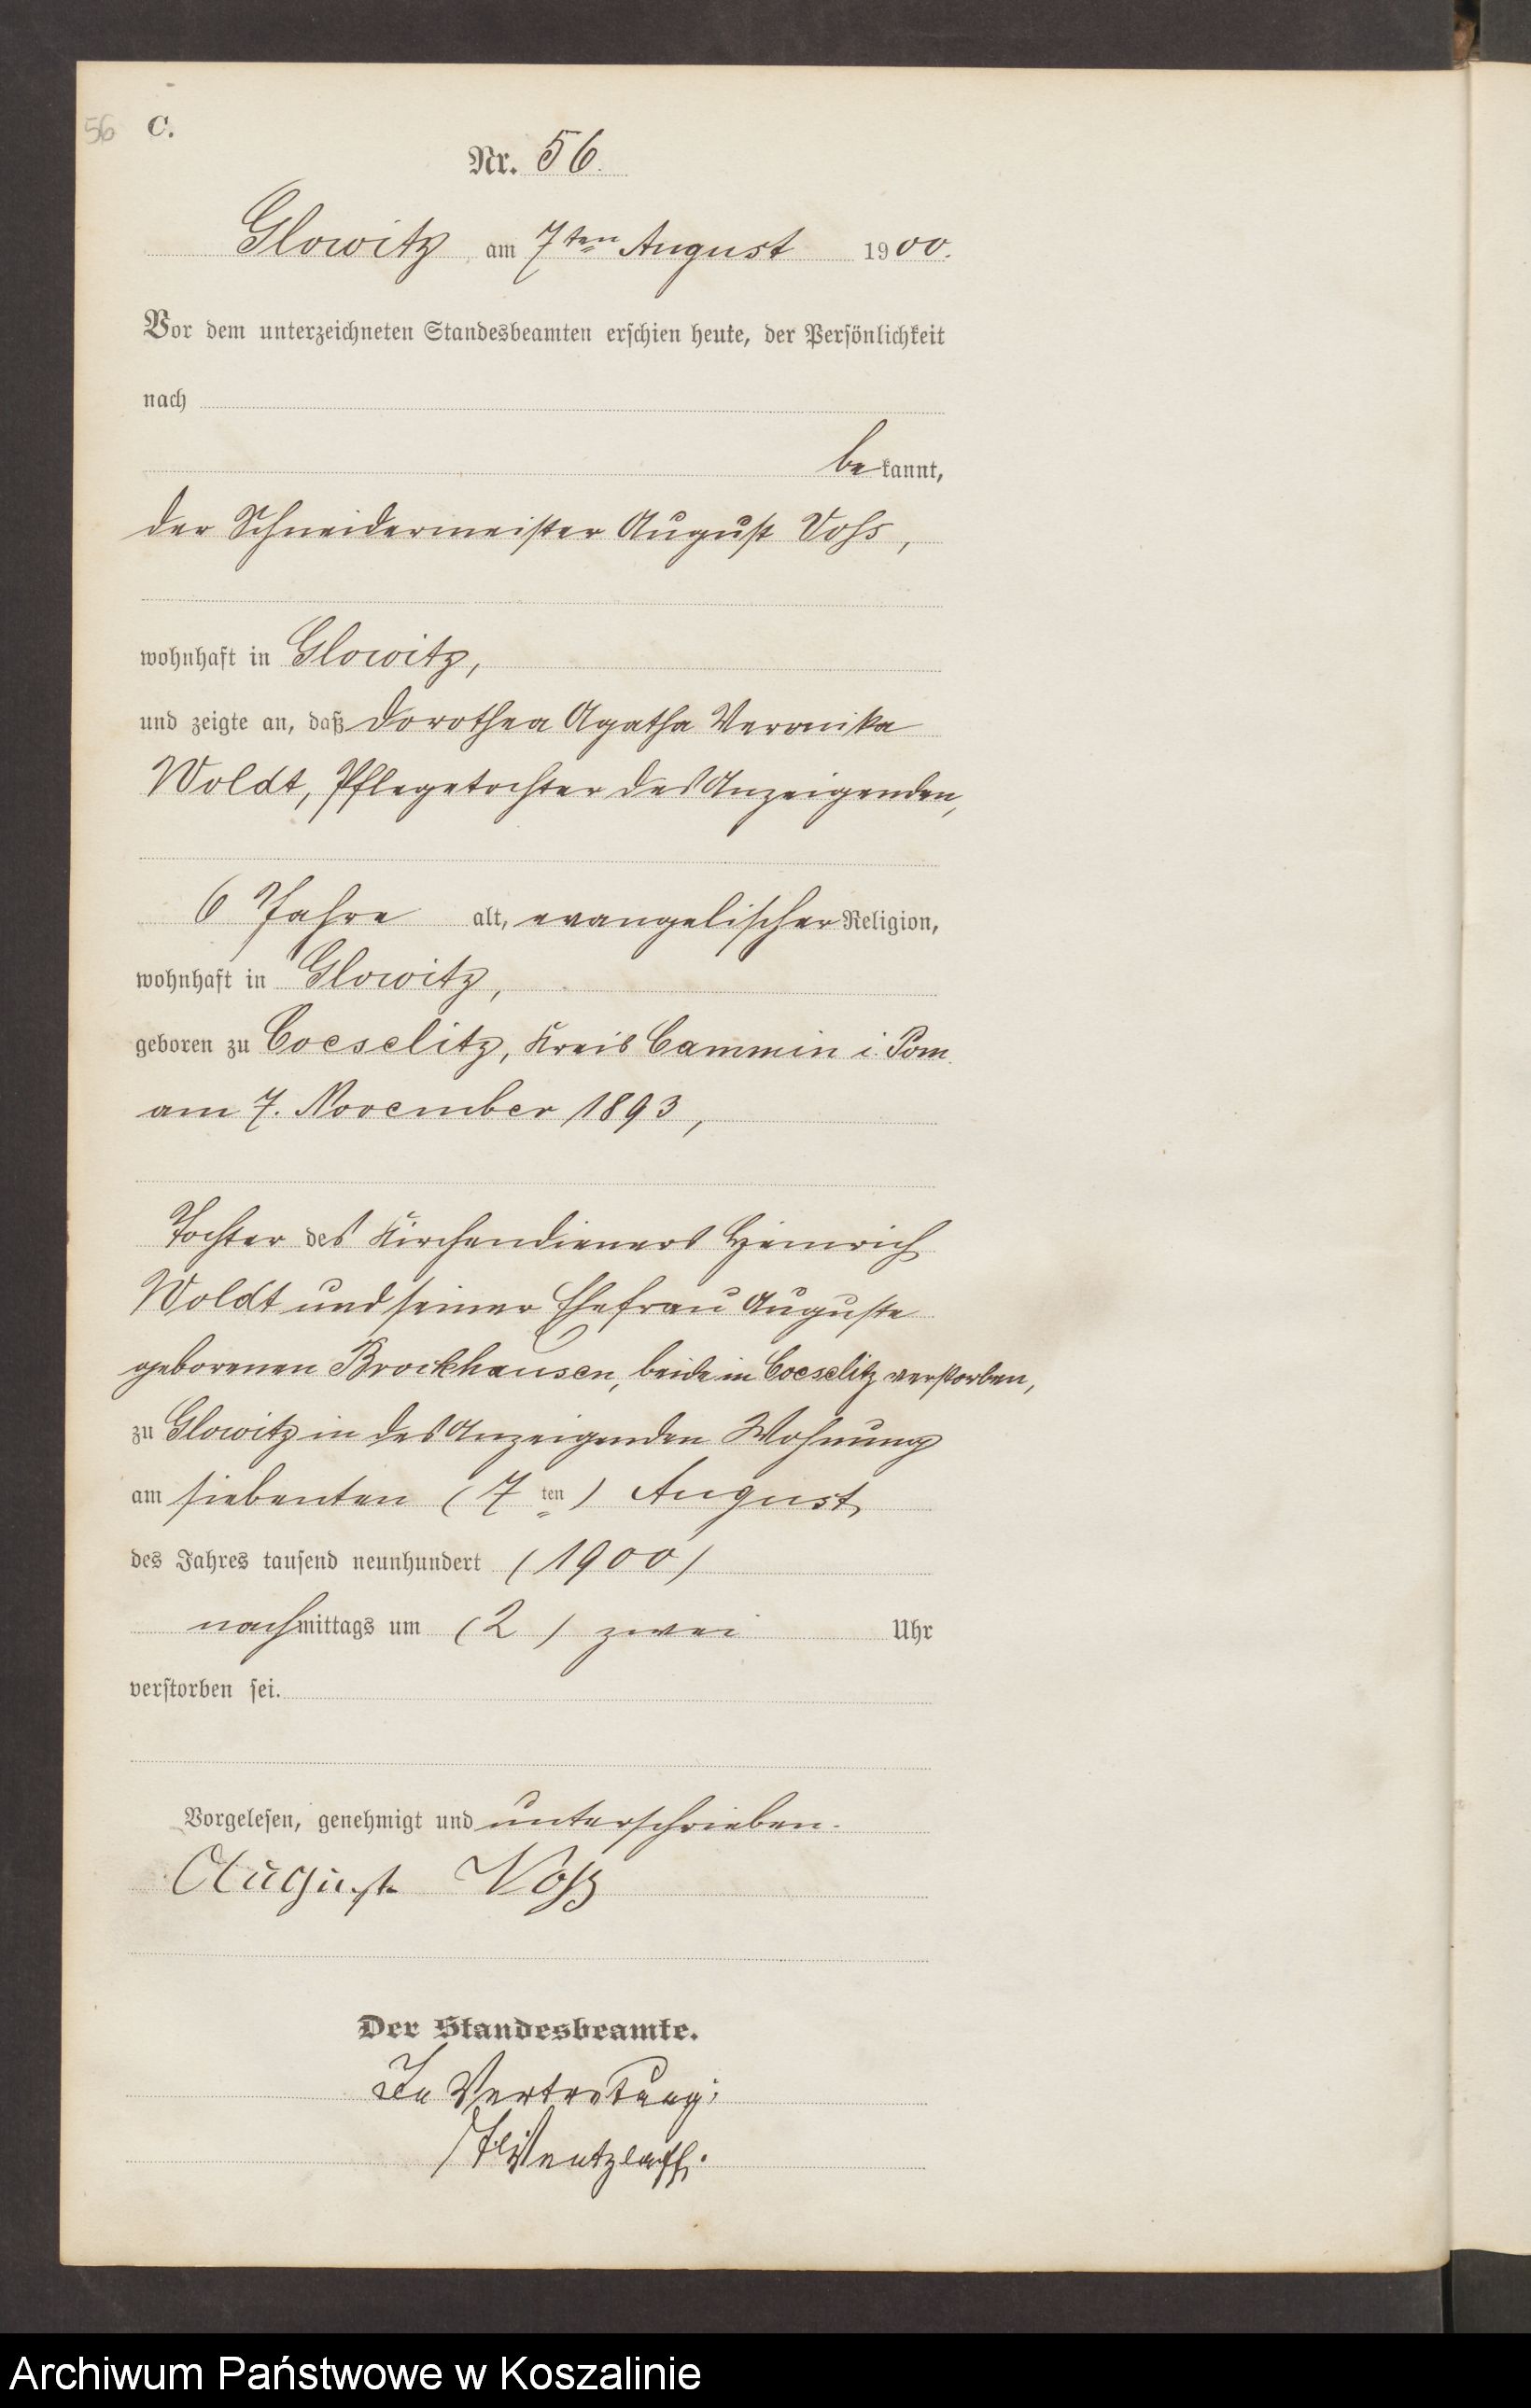 56 C.
Nr. 56.
Glowitz am 7ten August 1900.
Vor dem unterzeichneten Standesbeamten erschien heute, der Persönlichkeit
nach
bekannt,
der Schneidermeister August Vohs,
wohnhaft in Glowitz,
und zeigte an, daß Dorothea Agatha Veronika
Woldt, Pflegetochter des Anzeigenden,
6 Jahre alt, evangelischer Religion,
wohnhaft in Glowitz,
geboren zu Coeselitz, Kreis Cammin i. Pom.
am 7. November 1893,
Tochter des Kirchendieners Heinrich
Woldt und seiner Ehefrau Auguste
geborenen Brockhausen, beide in Coeselitz verstorben,
zu Glowitz in des Anzeigenden Wohnung
am siebenten (7ten) August
des Jahres tausend neunhundert (1900)
nachmittags um (2) zwei Uhr
verstorben sei.
Vorgelesen, genehmigt und unterschrieben.
August Voß
Der Standesbeamte.
In Vertretung:
Wentzlaff.
Archiwum Państwowe w Koszalinie